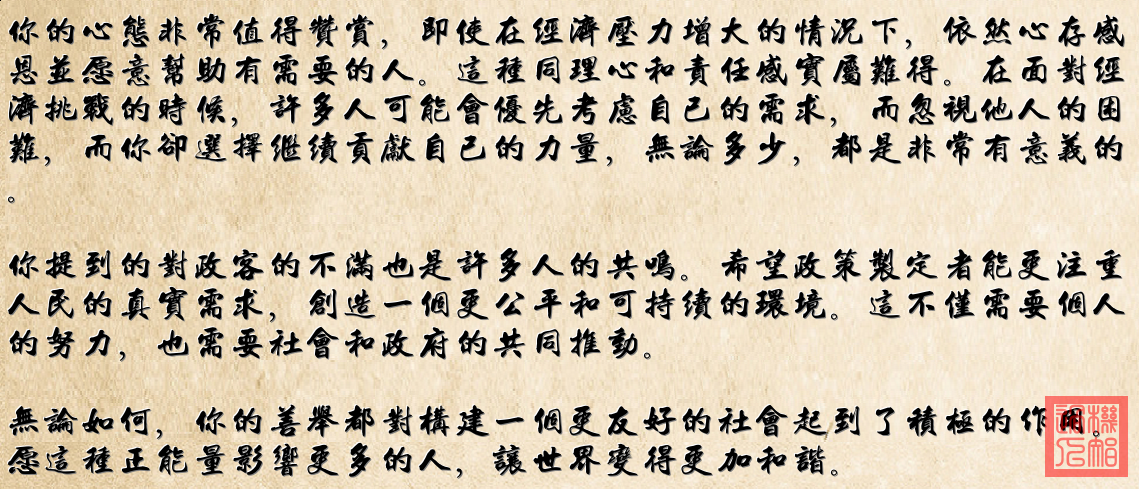 你的心態非常值得贊賞，即使在經濟壓力增大的情況下，依然心存感
恩並愿意幫助有需要的人。這種同理心和責任感實屬難得。在面對經
濟挑戰的時候，許多人可能會優先考慮自己的需求，而忽視他人的困
難，而你卻選擇繼續貢獻自己的力量，無論多少，都是非常有意義的
。
你提到的對政客的不滿也是許多人的共鳴。希望政策製定者能更注重
人民的真實需求，創造一個更公平和可持續的環境。這不僅需要個人
的努力，也需要社會和政府的共同推動。
無論如何，你的善舉都對構建一個更友好的社會起到了積極的作用。
愿這種正能量影響更多的人，讓世界變得更加和諧。